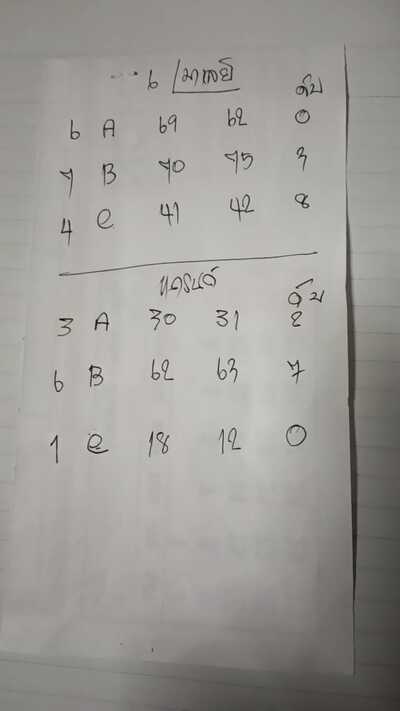 6 มาเลย์
ดับ
6 A 69 62 0
7 B 70 75 3
4 C 41 42 8
ดับ
3 A 30 31 2
6 B 62 63 7
1 C 18 12 0